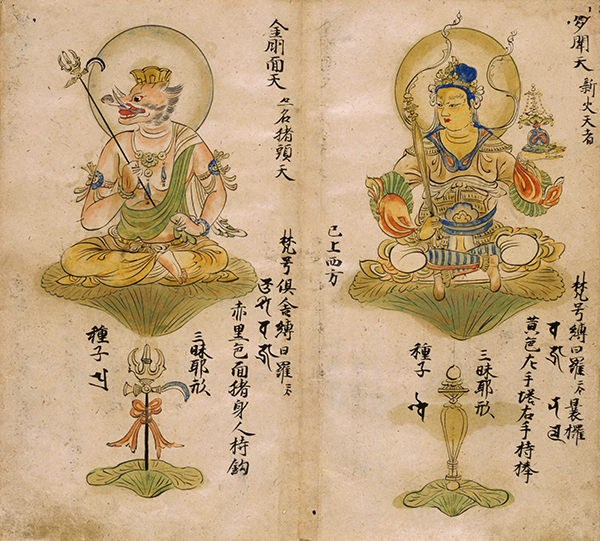 多聞天 新火天者
梵号縛日羅二合曩欏
黄色左手塔右手持棒
三昧耶形
種子
已上西方
金剛面天 亦名猪頭天
梵号俱舍縛日羅二合
赤黒色面猪身人持鈎
三昧耶形
種子